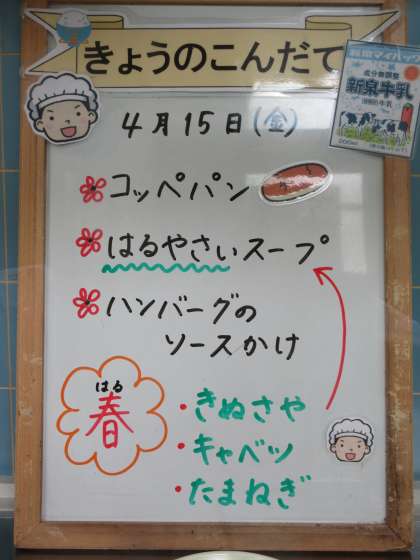 きょうのこんだて
成分無調整
新泉牛乳
200ml
4月15日(金)
コッペパン
はるやさいスープ
ハンバーグの
ソースかけ
はる
春
・きぬさや
・キャベツ
・たまねぎ